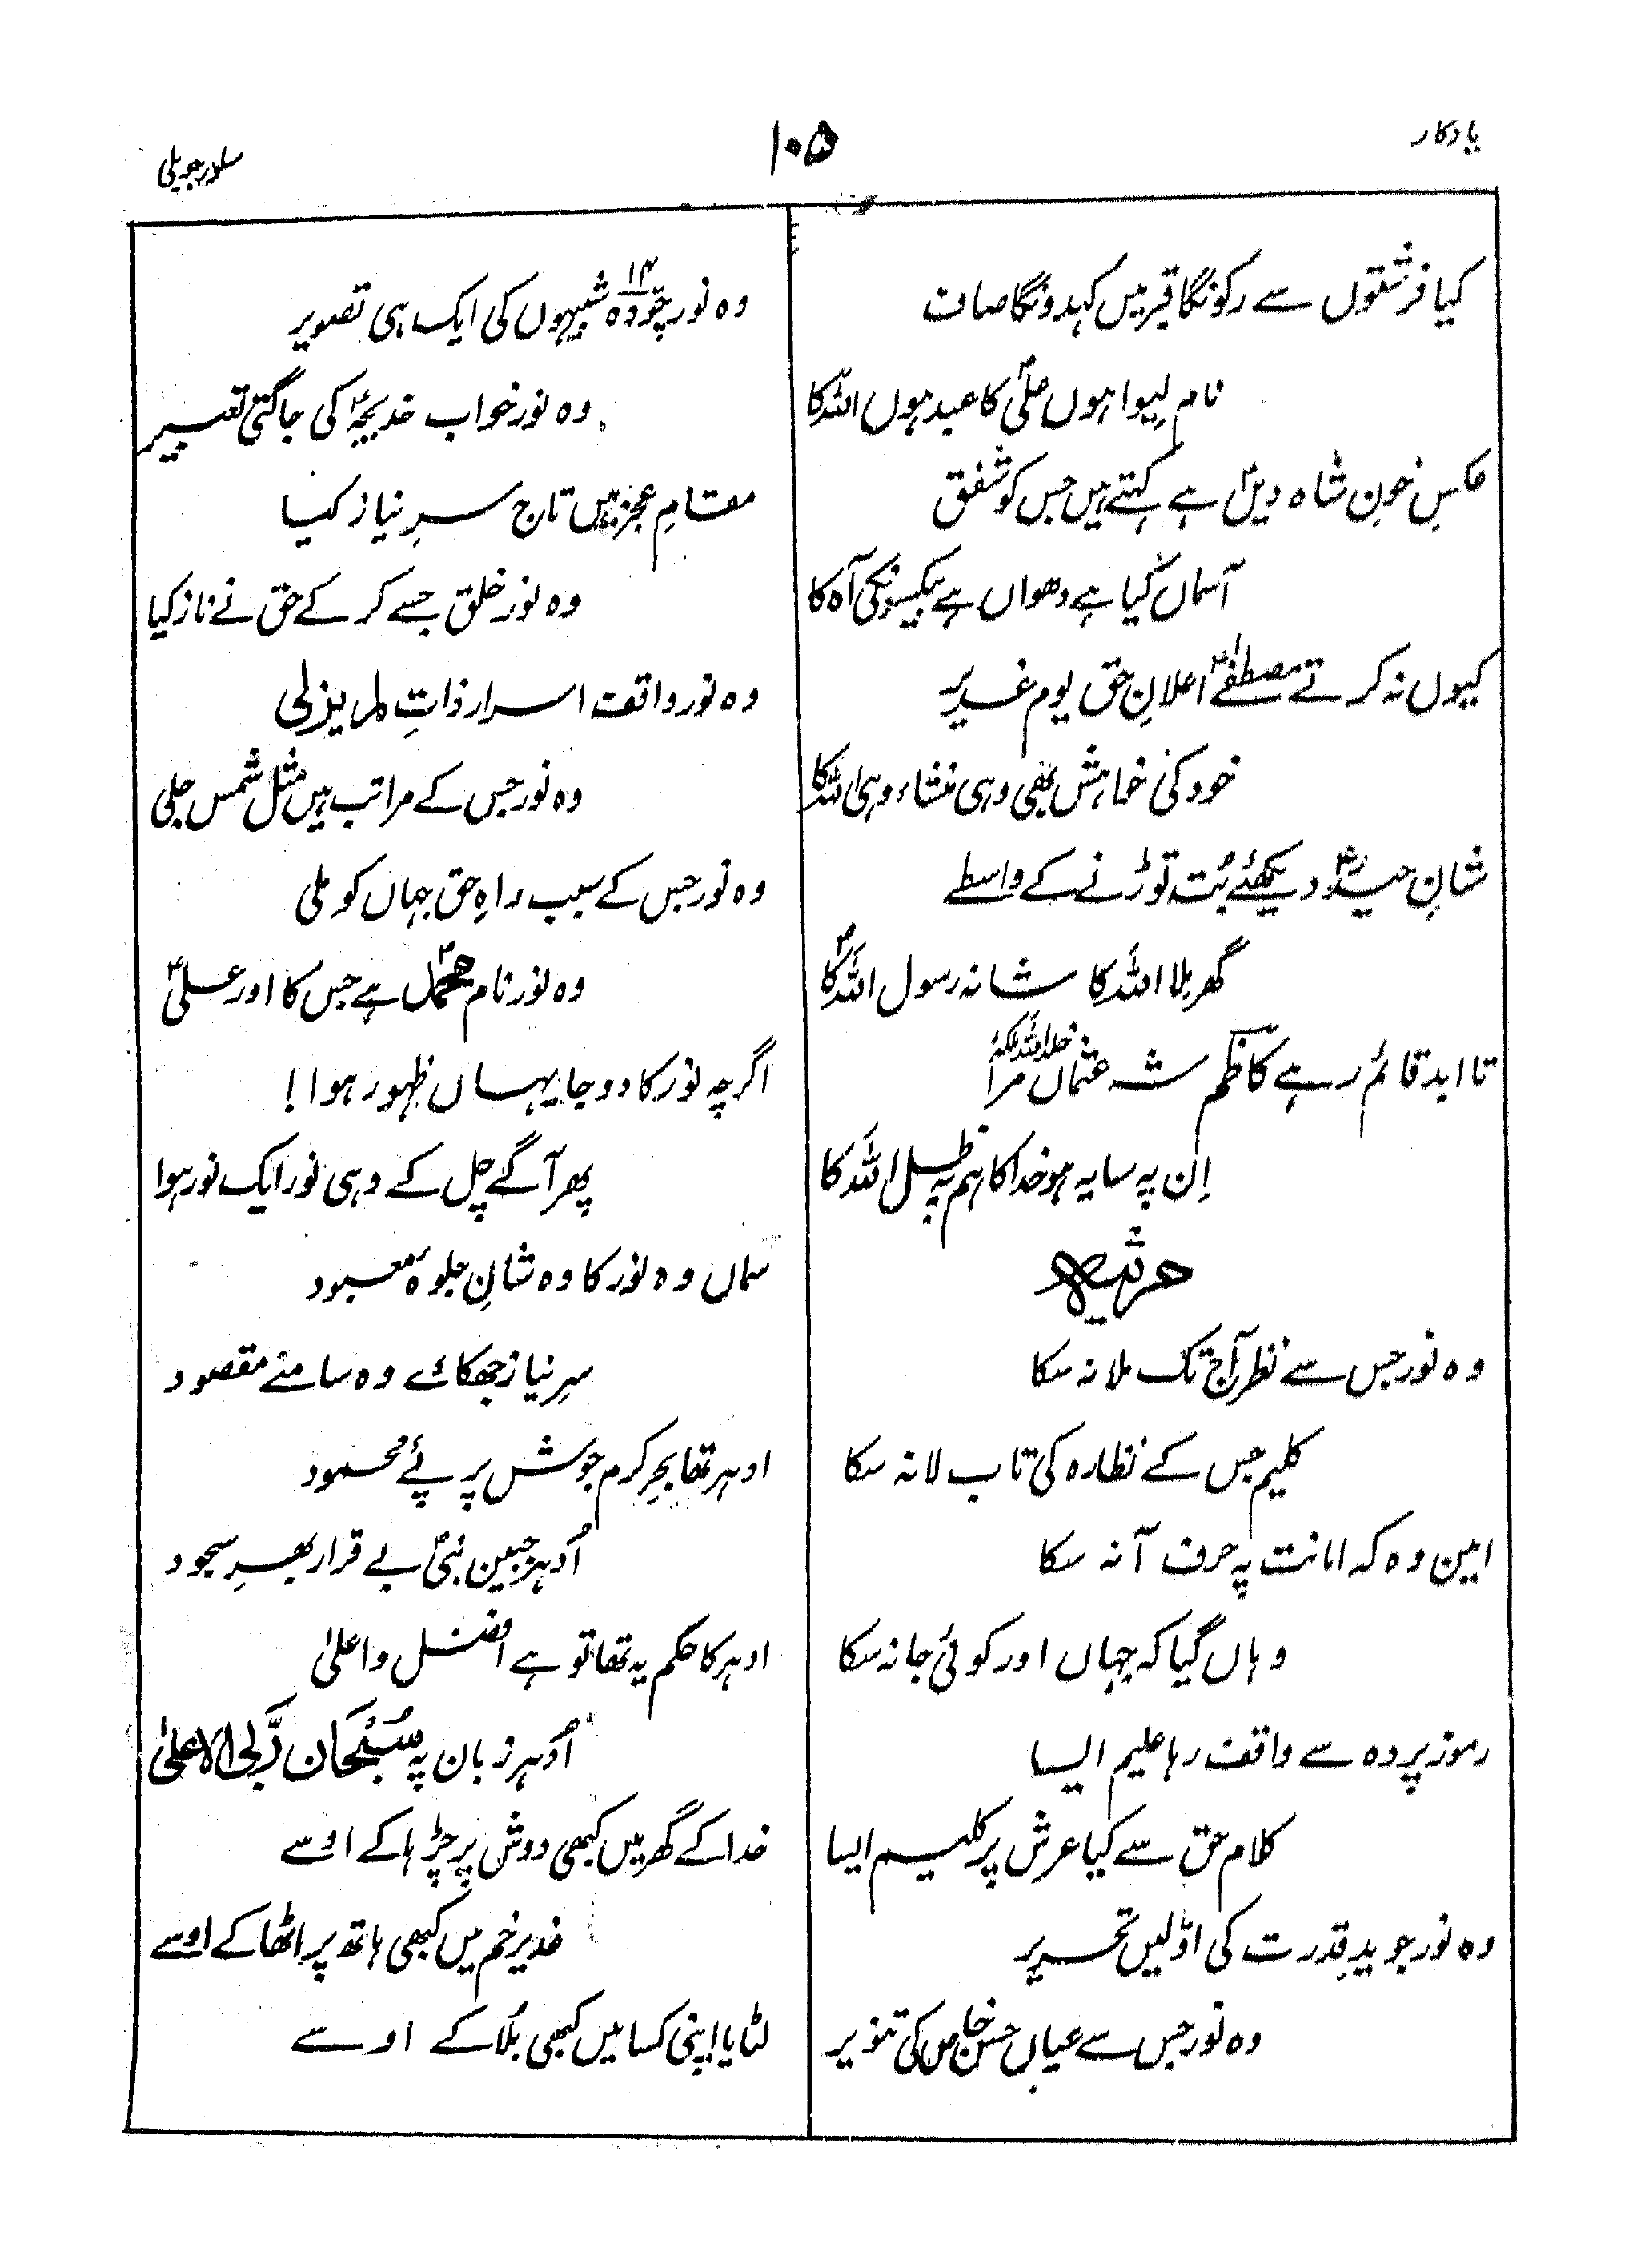 یادگار
۱۰۵
سلور جوبلی
کیا فرشتوں سے رکونگا قبر میں کہدونگا صاف
نام لیوا ہوں علیؑ کا عبد ہوں اللہ کا
عکسِ خونِ شاہ دیںؑ ہے کہتے ہیں جس کو شفق
آسماں کیا ہے دھواں ہے بیکسونکی آہ کا
کیوں نہ کرتے مصطفیٰؐ اعلانِ حق یوم غدیر
خود کی خواہش بھی وہی منشاء وہی اللہ کا
شانِ حیدرؑ دیکھئے بُت توڑنے کے واسطے
گھر بلا اللہ کا شانہ رسول اللہؐ کا
تا ابد قائم رہے کاظم شہ عثماں مرا خلد اللہ ملکہٗ
اِن پہ سایہ ہو خدا کا ہم پہ ظل اللہ کا
مرثیہ
وہ نور جس سے نظر آج تک ملا نہ سکا
کلیم جس کے نظارہ کی تاب لا نہ سکا
امین وہ کہ امانت پہ حرف آ نہ سکا
وہاں گیا کہ جہاں اور کوئی جا نہ سکا
رموز پردہ سے واقف رہا علیم ایسا
کلام حق سے کیا عرش پر کلیم ایسا
وہ نور جو یدِ قدرت کی اوّلیں تحریر
وہ نور جس سے عیاں حسن خاص کی تنویر
وہ نور چودہ ۱۴ شبیہوں کی ایک ہی تصویر
وہ نور خواب خدیجہؑ کی جاگتی تعبیر
مقامِ عجز میں تاج سرِ نیاز کیا
وہ نور خلق جسے کر کے حق نے ناز کیا
وہ نور واقف اسرار ذاتِ لم یزلی
وہ نور جس کے مراتب ہیں مثل شمس جلی
وہ نور جس کے سبب راہِ حق جہاں کو ملی
وہ نور نام محمدؐ ہے جس کا اور علیؑ
اگرچہ نور کا دو جا یہاں ظہور ہوا!
پھر آگے چل کے وہی نور ایک نور ہوا
سماں وہ نور کا وہ شانِ جلوہٴ معبود
سرِ نیاز جھکائے وہ سامنے مقصود
اودہر تھا بحرِ کرم جوش پر پئے محمود
اُدہر جبین نبیؐ بے قرار بہرِ سجود
اودہر کا حکم یہ تھا تو ہے افضل و اعلیٰ
اُدہر زبان پہ سُبْحَان رَبِّیَ الاعلیٰ
خدا کے گھر میں کبھی دوش پر چڑہا کے اوسے
غدیر خم میں کبھی ہاتھ پر اٹھا کے اوسے
لٹایا اپنی کسا میں کبھی بُلا کے اوسے